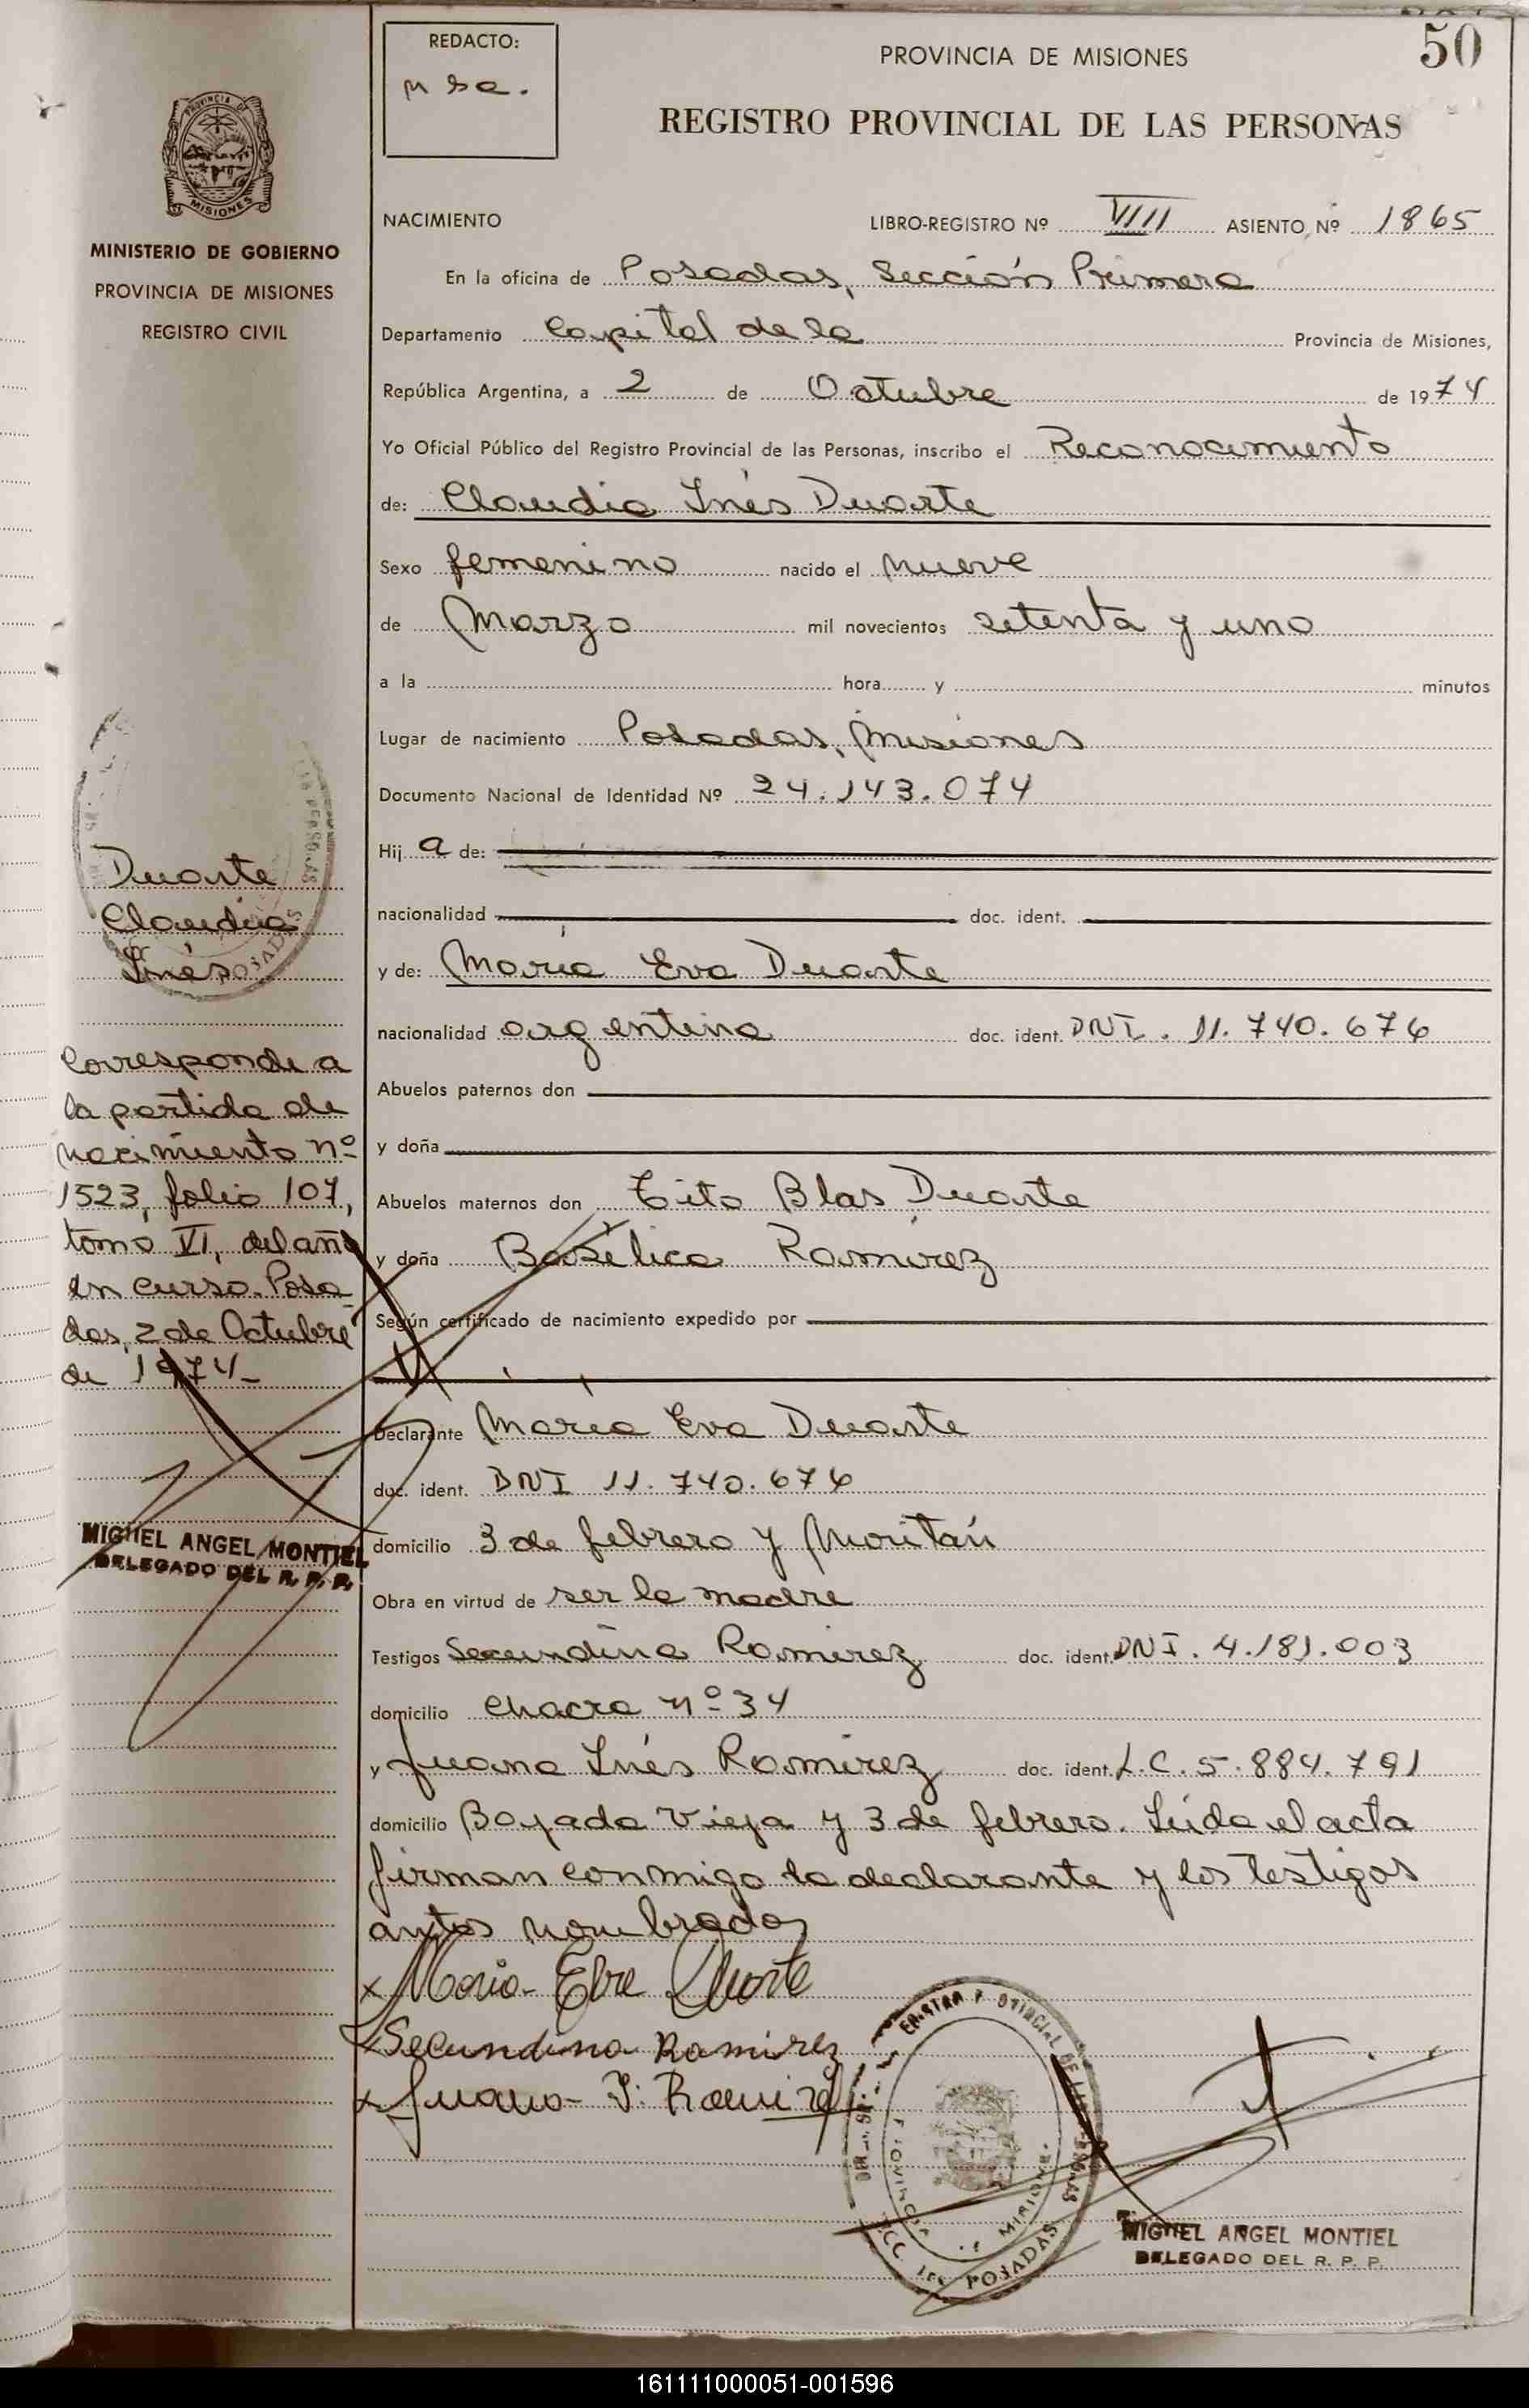 REDACTO:
PROVINCIA DE MISIONES
50
REGISTRO PROVINCIAL DE LAS PERSONAS
PROVINCIA DE
MISIONES
MINISTERIO DE GOBIERNO
PROVINCIA DE MISIONES
REGISTRO CIVIL
NACIMIENTO LIBRO-REGISTRO Nº VIII ASIENTO Nº 1865
En la oficina de Posadas, Sección Primera
Departamento Capital de la Provincia de Misiones,
República Argentina, a 2 de Octubre de 1974
Yo Oficial Público del Registro Provincial de las Personas, inscribo el Reconocimiento
de: Claudia Inés Duarte
Sexo femenino nacido el nueve
de Marzo mil novecientos setenta y uno
a la hora y minutos
Lugar de nacimiento Posadas, Misiones
Documento Nacional de Identidad Nº 24.143.074
Hij a de:
nacionalidad doc. ident.
y de: María Eva Duarte
nacionalidad argentina doc. ident. DNI. 11.740.676
Abuelos paternos don
y doña
Abuelos maternos don Tito Blas Duarte
y doña Basilica Ramirez
Según certificado de nacimiento expedido por
Declarante María Eva Duarte
doc. ident. DNI 11.740.676
domicilio 3 de febrero y
Obra en virtud de ser la madre
Testigos Secundina Ramirez doc. ident. DNI. 4.181.003
domicilio Chacra nº 34
y Juana Inés Ramirez doc. ident. L.C. 5.884.791
domicilio Bajada Vieja y 3 de febrero. Leída el acta
firman conmigo la declarante y los testigos
antes nombrados
Duarte
Claudia
Inés
Corresponde a
la partida de
nacimiento nº
1523, folio 107,
tomo VI, del año
en curso. Posa
das, 2 de Octubre
de 1974-
MIGUEL ANGEL MONTIEL
DELEGADO DEL R. P. P.
Maria Duarte
Secundina Ramirez
Juana I. Ramirez
POSADAS
MIGUEL ANGEL MONTIEL
DELEGADO DEL R. P. P.
161111000051-001596